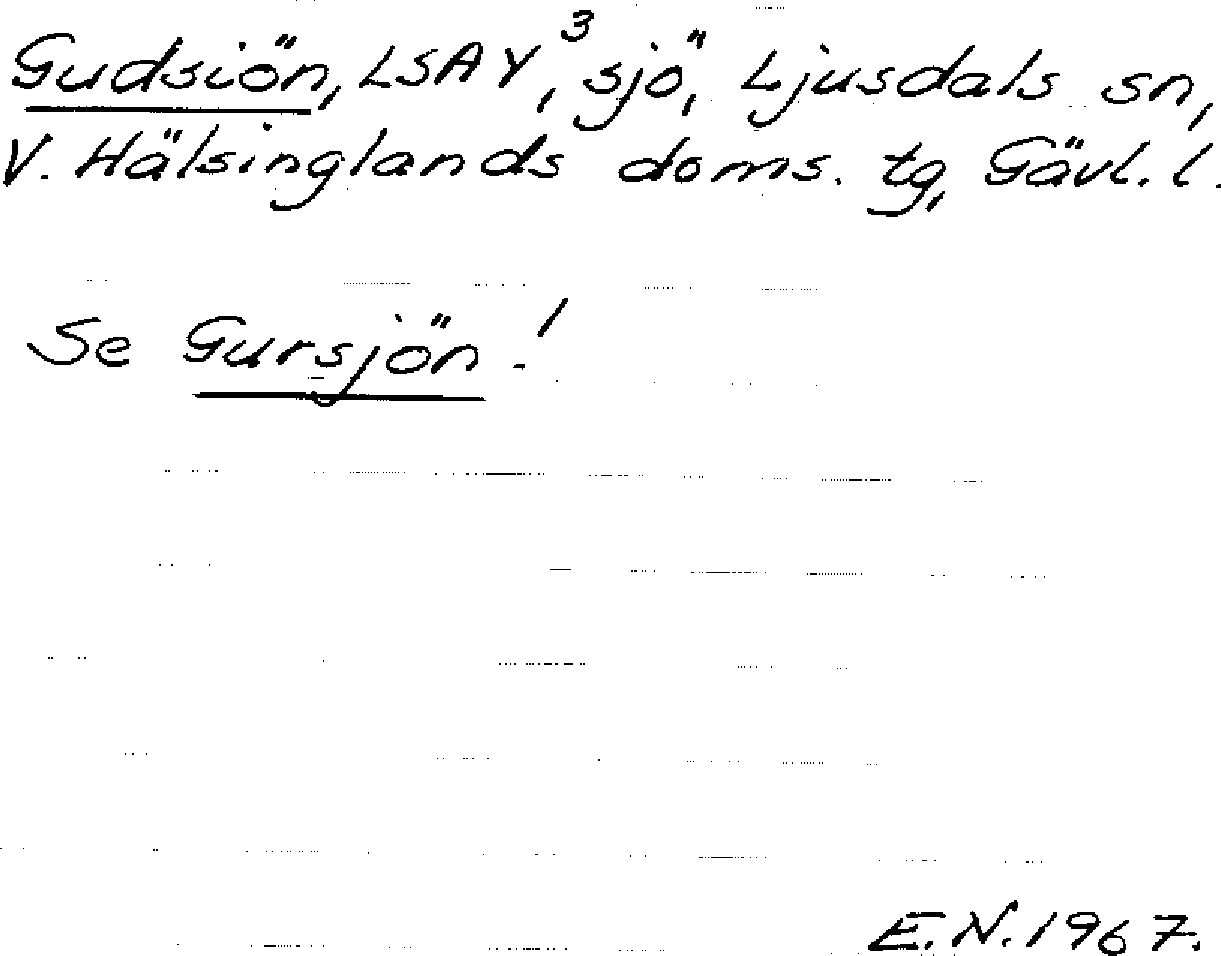 Gudsiön, LSA Y³, sjö, Ljusdals sn,
V. Hälsinglands doms. tg, Gävl. l.
Se Gursjön!
E.N. 1967.